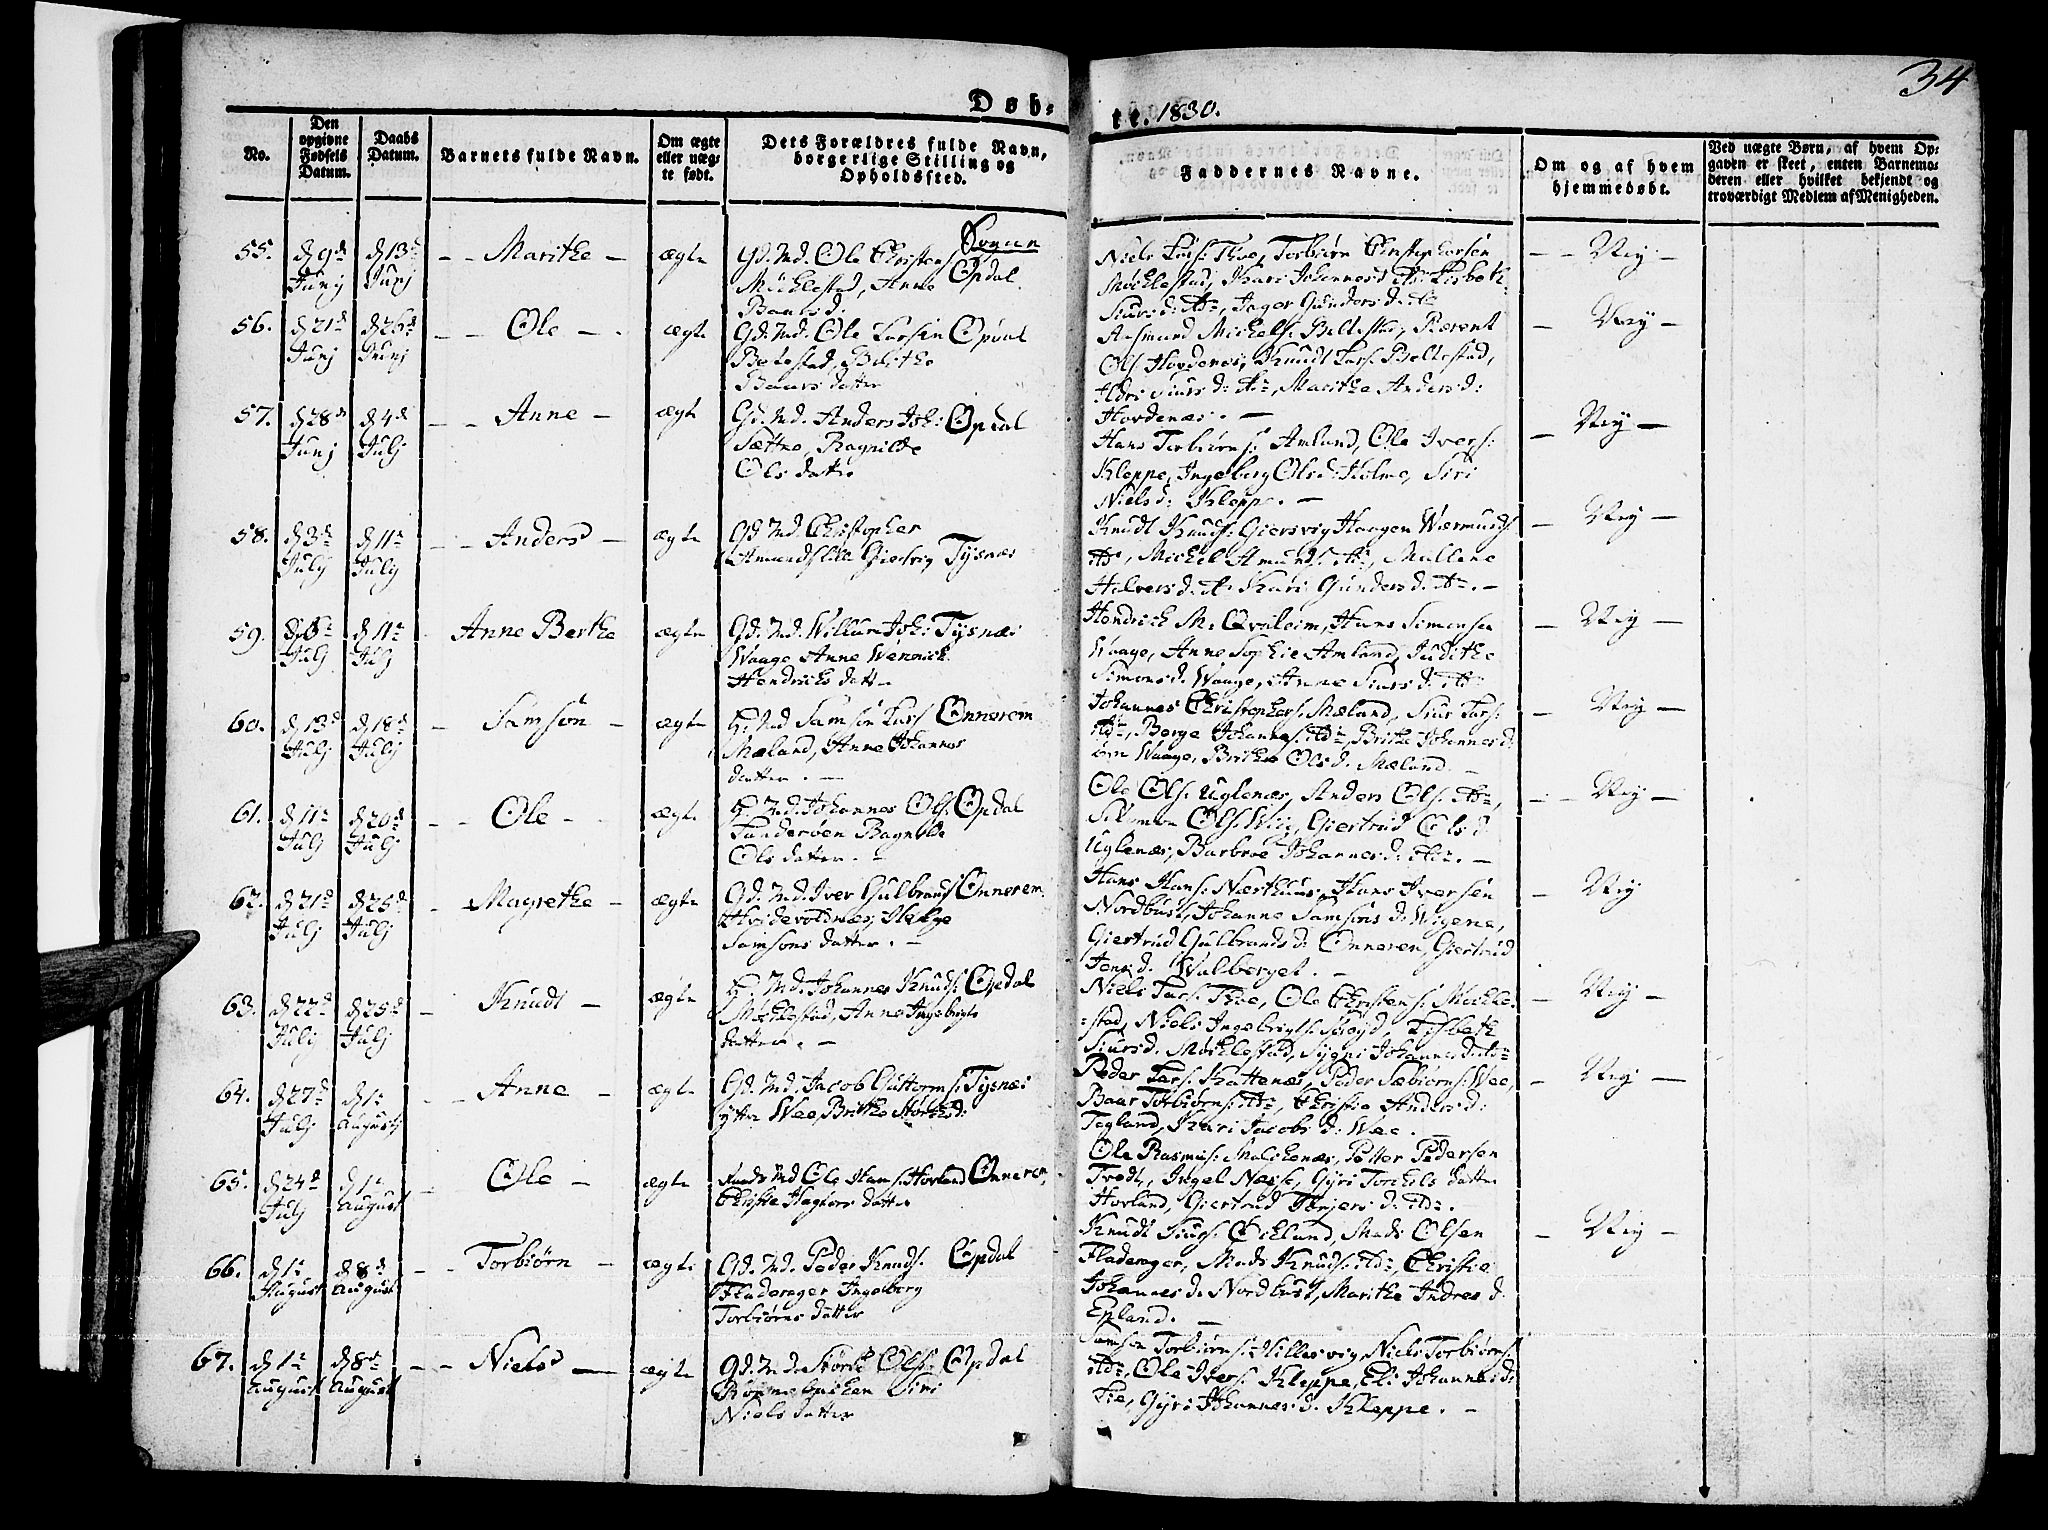 34
Døb-
te. 1830.
No.
Den opgivne Fødsels Datum.
Daabs Datum.
Barnets fulde Navn.
Om ægte eller uæg- te født.
Dets Forældres fulde Navn, borgerlige Stilling og Opholdssted.
Faddernes Navne.
Om og af hvem hjemmedøbt.
Ved uægte Børn, af hvem Op- gaven er skeet, enten Barnemo- deren eller hvilket bekjendt og troværdigt Medlem af Menigheden.
Sognen
55. d 9de Junj d 13de Junj - - Marithe - ægte Gd. Md. Ole Christens Opdal
Møchlestad, Anne
Baarsd.
Niels Lars. Thoe, Torbiørn Christophersen
Møchlestad, Kari Johannesd. Do Lisbeth
Siursd: Do, Inger Gundersd. Do
- - Nej -
56. d 21de Junj d 26de Junj - - Ole - ægte Gd. Md. Ole Larsen Opdal
Beltestad, Brithe
Baars datter
Aasmund Michels. Beltestad, Berent
Ols. Hovdenæs, Knudt Lars. Beltestad,
Siurs d: Do, Marithe Anders d:
Hovdenæs. -
- Nej -
57. d 28de Junj d 4de Julj - - Anne - ægte Gd. Md. Anders Joh: Opdal
Sættre, Ragnilde
Ols datter
Hans Torbiørns. Amland, Ole Ivers:
Kleppe, Ingeberg Olsd: Holme, Siri
Niels d: Kleppe. -
- Nej -
58. d 3de Julj d 11te Julj - - Anders - ægte Gd. Md. Christopher
Amunds. Lille Giersvig Tysnæs
Knudt Knuds: Giersvig Haagen Wermunds
Do, Michel Amunds. Do, Mallene
Halvors d. Do Kari Gunders d. Do. -
- Nej -
59. Julj d 11te Julj - Anne Berthe ægte Gd. Md. Willum Joh: Tysnæs
Waage, Anne Wenniche
Hendrichs datt -
Hendrich M: Qvaleim, Hans Simonsen
Waage, Anne Sophie Amland, Judithe
Simonsd. Waage, Anne Siurs d. Do
- Nej -
60. d 13de Julj d 18de Julj - Samson - ægte H. Md Samson Lars Onnerem
Mæland, Anne Johannes
datter. -
Johannes Christophers. Mæland, Siur Lars:
Do, Børge Johannes: Do, Brithe Johannes d:
Waage, Brithe Ols d. Mæland. -
- Nej -
61. d 11te Julj d 20de Julj - - Ole - ægte H. Md. Johannes Ols. Opdal
Sunderven Ragnilde
Ols datter. -
Ole Ols. Uglenæs, Anders Ols. Do,
Simon Ols. Wiig, Giertrud Ols d
Uglenæs, Barbroe Johannes d: Do. -
- - Nej -
62. d 21de Julj d 25de Julj - Magrethe - ægte Gd. Md. Iver Gulbrands Onnerem
Hvidevoldnæs, Helge
Samsons datter. -
Hans Hans. Nærthuus, Hans Iversen
Nordhuus, Johanne Samsons d. Wigene,
Giertrud Gulbrands d: Onnerem, Giertrud
Jensd. Walberget. -
- Nej
63. d 22de Julj d 25de Julj - Knudt - ægte H. Md. Johannes Knuds. Opdal
Møchlestad, Anne Ingebrigts
datter. -
Niels Lars. Thoe, Ole Christens: Møchle-
stad, Niels Ingebrigts. Lisbeth
Siursd. Møchlestad, Sygni Johannes d: Do
- Nej -
64. d 27de Julj d 1te Augustj - - Anne - ægte Gd. Md. Jacob Guttorms. Tysnæs
yttre Wee, Brithe
Peder Lars. Kattenæs, Peder Sæbiørns: Wee,
Baar Torbiørns: Do, Christie Anders d:
Tegland, Kari Jacobs d: Wee. -
- Nej -
65. d 24de Julj d 1te August - Ole - ægte Md Ole Hans. Hovland Onnerem,
Christie datter
Ole Rasmus. Malchenæs, Petter Pedersen
Tvedt, Ingel Gyri Torchels datter
Hovland, Giertrud d. Do.
66. d 1te August d 8de August - - Torbiørn - ægte Gd. Md. Peder Knuds. Opdal
Fladerager Ingeberg
Torbiørns datter
Knudt Siurs. Økland, Mads Olsen
Fladerager, Mads Knuds. Do, Christie
Johannes d. Nordhuus, Marithe Andres d.
Epland. -
- Nej -
67. d 1te August d 8de August - - Niels - ægte Gd. Md. Størk Ols. Opdal
Siri
Niels datter
Samson Torbiørns: Hillesvig, Niels Torbiørns
Do, Ole Ivers. Kleppe, Eli Johannes d:
Lie, Gyri Johannes d. Kleppe. -